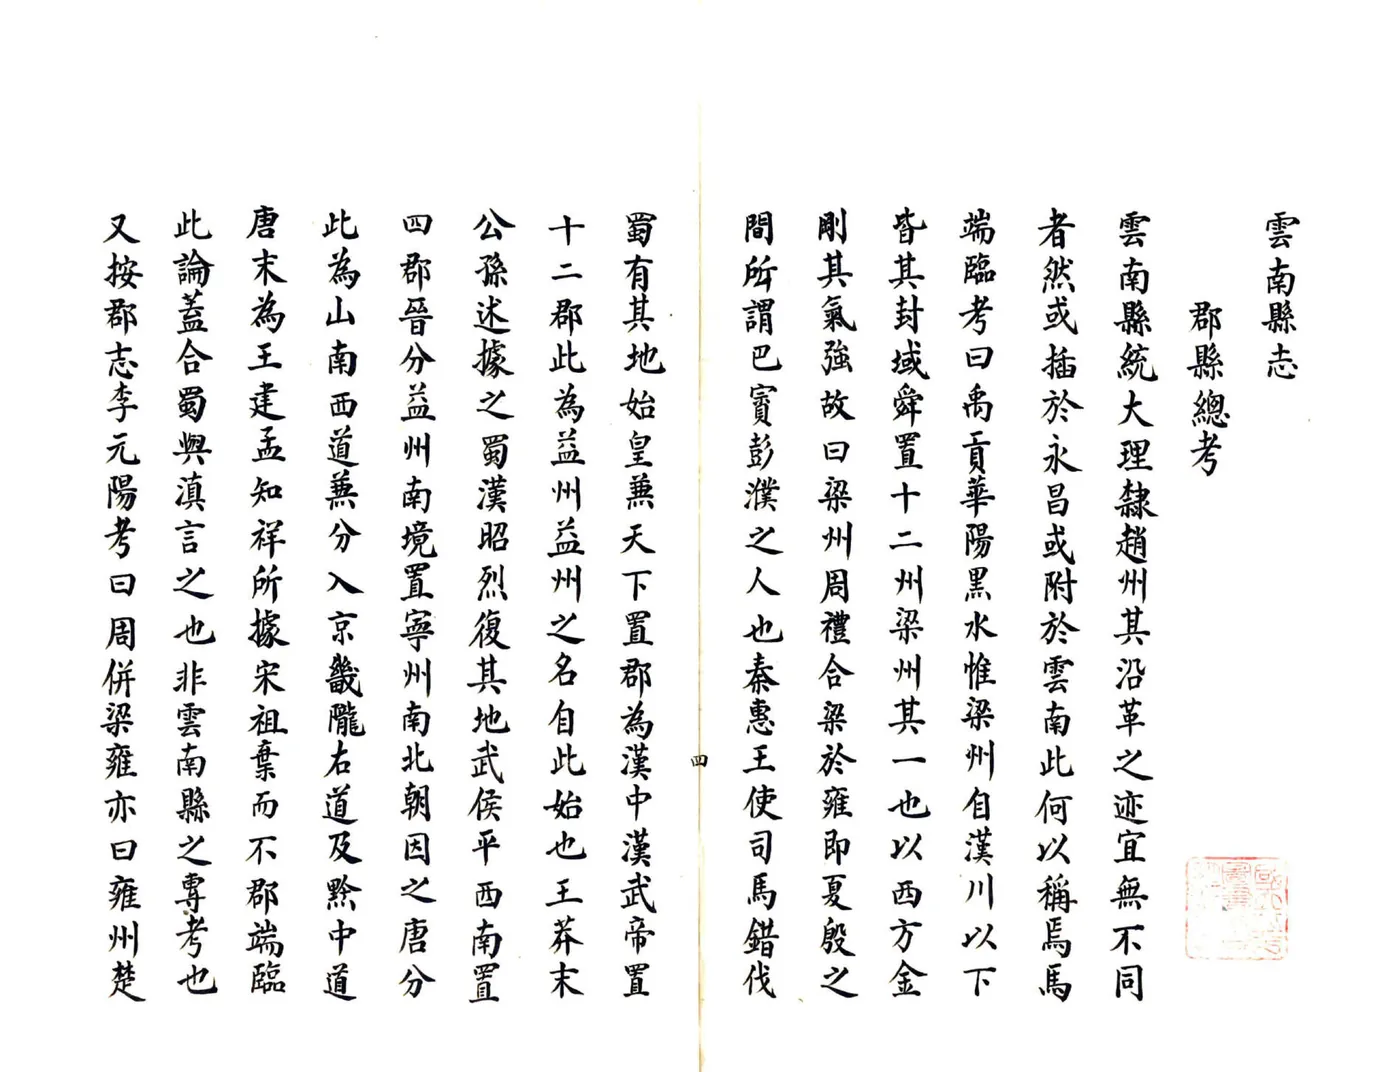 雲南縣志
郡縣總考
雲南縣統大理隸趙州其沿革之迹宜無不同
者然或插於永昌或附於雲南此何以稱焉馬
端臨考曰禹貢華陽黑水惟梁州自漢川以下
皆其封域舜置十二州梁州其一也以西方金
剛其氣強故曰梁州周禮合梁於雍即夏殷之
間所謂巴賨彭濮之人也秦惠王使司馬錯伐
四
蜀有其地始皇兼天下置郡為漢中漢武帝置
十二郡此為益州益州之名自此始也王莽末
公孫述據之蜀漢昭烈復其地武侯平西南置
四郡晉分益州南境置寧州南北朝因之唐分
此為山南西道兼分入京畿隴右道及黔中道
唐末為王建孟知祥所據宋祖棄而不郡端臨
此論蓋合蜀與滇言之也非雲南縣之專考也
又按郡志李元陽考曰周併梁雍亦曰雍州楚